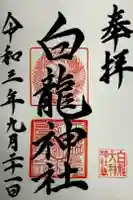 奉拝
白龍神社
令和三年九月二十一日
白龍大神